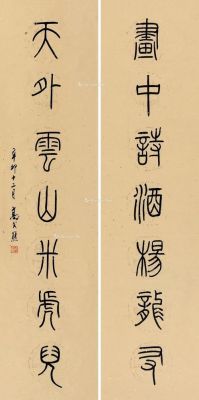 畫中詩酒楊龍友
天外雲山米虎兒
辛卯十二月 高式熊